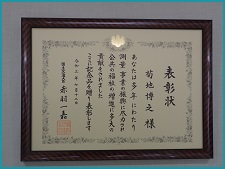 表彰状
菊地博之様
あなたは多年にわたり
測量事業の振興に尽力され
公共の福祉の増進に多大の
貢献をされました
ここに記念品を贈り表彰します
令和三年
赤羽一嘉